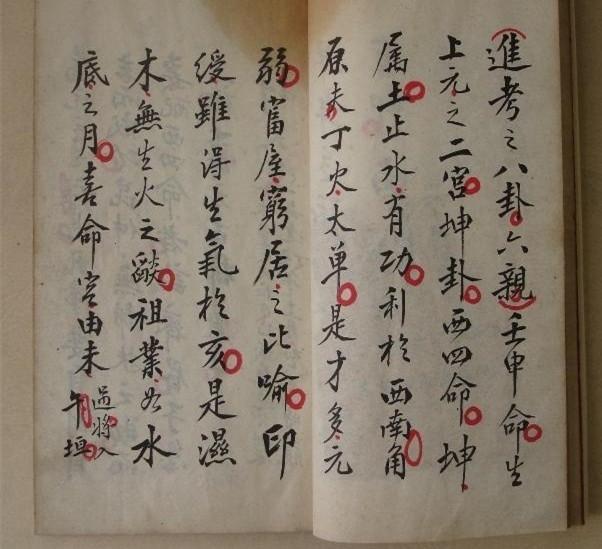 進考之八卦六親壬申命生
上元之二宮坤卦西四命坤
属土止水有功利於西南角
原未丁火太單是才多元
弱富屋窮居之比喻印
綬雖得生氣於亥是濕
木無生火之燄祖業如水
底之月喜命宮由未
過將入
午垣